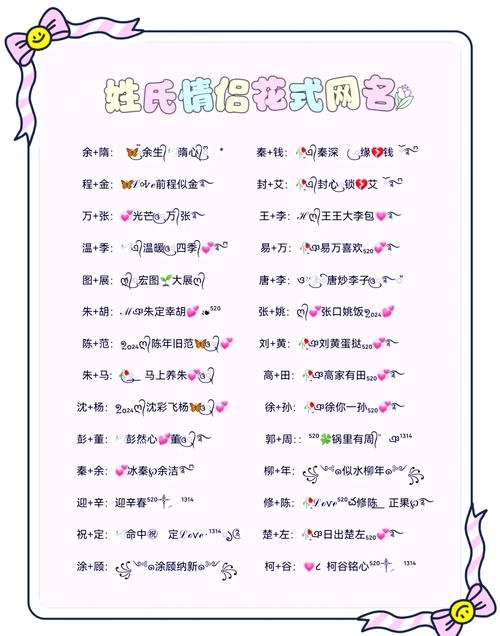 姓氏情侣花式网名
余+隋： 🦋余生 隋心 *
秦+钱： 🥀秦深 缘💔钱
程+金： 🦋𝓛𝓸𝓿𝓮前程似金
封+艾： 🥀封心 锁💔艾
万+张： 💕光芒万张
王+李： ℋ王王大李包💗
温+季： 温暖四季💕
易+万： 🥀易万喜欢₅₂₀💕
图+展： ღ宏图🌱大展ღ
唐+李： 唐炒李子
朱+胡： ℳ朱定幸胡💕 ⁵²⁰
张+姚： ღ💕张口姚饭2024💕
陈+范： 2024ღ陈年旧范🦋💕
刘+黄： 🥀刘黄蛋挞₅₂₀💕
朱+马： 🥀 马上养朱💕
高+田： 🥀高家有田₅₂₀💕
沈+杨： 2024ღ沈彩飞杨🦋💕
徐+孙： 🥀徐你一孙₅₂₀💕
彭+董： 彭然心💕董
郭+周：： ⁵²⁰🍀锅里有周 ¹³¹⁴
秦+余： 💕冰秦余洁
柳+年： 似水柳年
迎+辛： 迎辛春⁵²⁰ ¹³¹⁴
修+陈： 🥀𝓛𝓸𝓿𝓮⁵²⁰修陈 正果
祝+定： 命中㊗ 定𝓛𝓸𝓿𝓮·¹³¹⁴
楚+左： 🥀日出楚左₅₂₀💕
涂+顾： 涂顾纳新
柯+谷： 💗 柯谷铭心₅₂₀ ¹³¹⁴